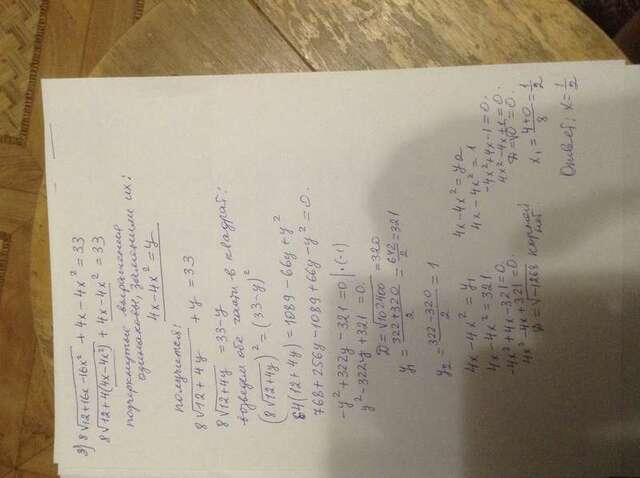 3) 8√12+16x-16x² + 4x-4x² = 33
8√12+4(4x-4x²) + 4x-4x² = 33
подчеркнутые выражения
одинаковы, заменим их:
4x-4x² = y
получится:
8√12+4y + y = 33
8√12+4y = 33-y
возведем обе части в квадрат:
(8√12+4y)² = (33-y)²
64(12+4y) = 1089-66y+y²
768+256y-1089+66y-y² = 0.
-y²+322y-321 = 0 |·(-1)
y²-322y+321 = 0.
D = √102400 = 320
y₁ = (322+320)/2 = 642/2 = 321
y₂ = (322-320)/2 = 1
4x-4x² = y₁
4x-4x² = 321
-4x²+4x-321 = 0.
4x²-4x+321 = 0.
D = √-1268 корней нет
4x-4x² = y₂
4x-4x² = 1
-4x²+4x-1 = 0.
4x²-4x+1 = 0.
D = √0 = 0.
x₁ = (4+0)/8 = 1/2
Ответ: x = 1/2